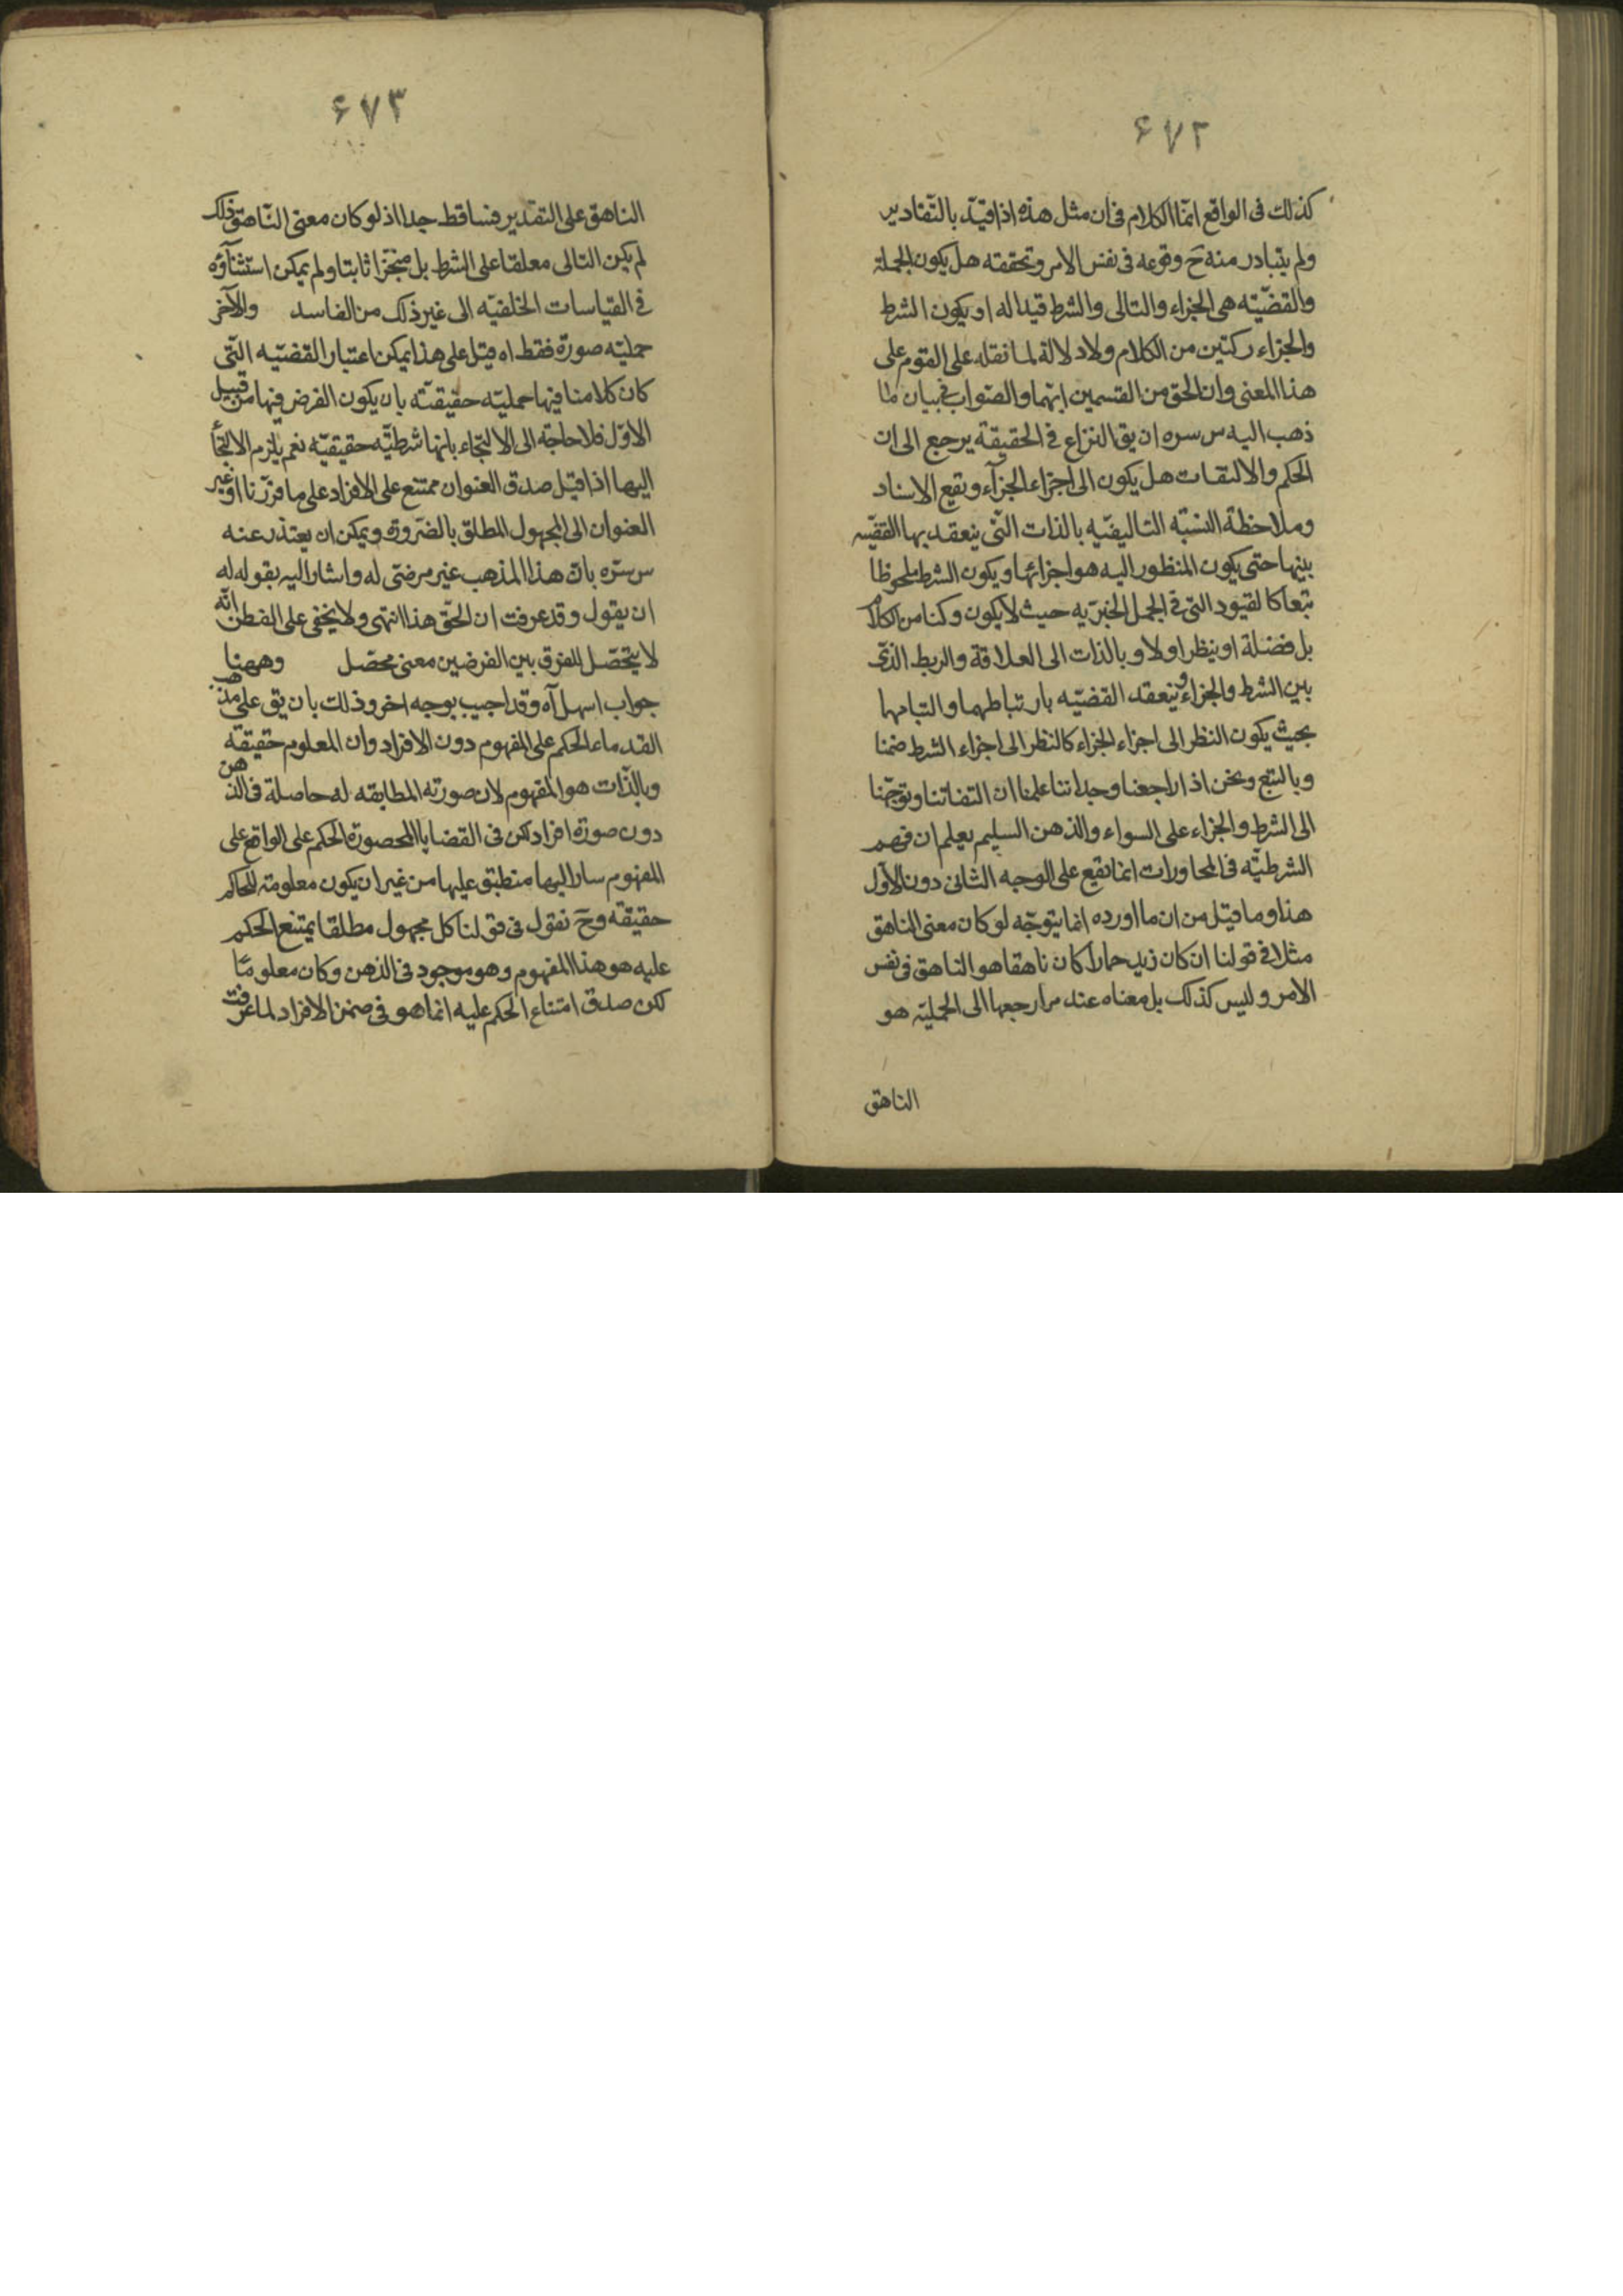 ۶۷۲
كذلك فى الواقع انما الكلام فى ان مثل هذه اذا قيّد بالتقادير
ولم يتبادر منه ح وقوعه فى نفس الامر وتحققه هل يكون الجملة
والقضيّة هى الجزاء والتالى والشرط قيدا له او يكون الشرط
والجزاء ركنين من الكلام ولا دلالة لما نقله على القوم على
هذا المعنى وان الحق من القسمين ايهما والصواب فى بيان ما
ذهب اليه س سره ان يق النزاع فى الحقيقة يرجع الى ان
الحكم والالتفات هل يكون الى اجزاء الجزآء ويقع الاسناد
وملاحظة النسبة التاليفيّه بالذات التى ينعقد بها القضيّه
بينها حتى يكون المنظور اليه هو اجزائها ويكون الشرط ملحوظا
تبعا كالقيود التى فى الجمل الخبريه حيث لا يكون ركنا من الكلام
بل فضلة او ينظر اولا وبالذات الى العلاقة والربط الذى
بين الشرط والجزاء وينعقد القضيّه بارتباطهما والتيامهما
بحيث يكون النظر الى اجزاء الجزاء كالنظر الى اجزاء الشرط ضمنا
وبالتبع ونحن اذا راجعنا وجداننا علمنا ان التفاتنا وتوجّهنا
الى الشرط والجزاء على السواء والذهن السليم يعلم ان فهم
الشرطيّه فى المحاورات انما يقع على الوجه الثانى دون الاول
هذا وما قيل من ان ما اورده انما يتوجّه لو كان معنى الناهق
مثلا فى قولنا ان كان زيد حمارا كان ناهقا هو الناهق فى نفس
الامر وليس كذلك بل معناه عند مرارجعها الى الحمليّه هو
الناهق
۶۷۳
الناهق على التقدير فساقط جدا اذ لو كان معنى النّاهق ذلك
لم يكن التالى معلقا على الشرط بل منجّزا ثابتا ولم يمكن استثنآؤه
فى القياسات الخلفيّه الى غير ذلك من المفاسد والآخر
حمليّه صورة فقط اه قيل على هذا يمكن اعتبار القضيّه التى
كان كلامنا فيها حمليّه حقيقيّه بان يكون الفرض فيها من قبيل
الاوّل فلا حاجة الى الالتجاء بانها شرطيّه حقيقيّه نعم يلزم الالتجآ
اليها اذا قيل صدق العنوان ممتنع على الافراد على ما قررنا او غير
العنوان الى المجهول المطلق بالضرورة ويمكن ان يعتذر عنه
س سرّه بان هذا المذهب غير مرضى له واشار اليه بقوله له
ان يقول وقد عرفت ان الحقّ هذا انتهى ولا يخفى على الفطن انّه
لا يتحصّل للفرق بين الفرضين معنى محصّل وههنا
جواب اسهل آه وقد اجيب بوجه اخر وذلك بان يق على مذهب
القدماء الحكم على المفهوم دون الافراد وان المعلوم حقيقة
وبالذّات هو المفهوم لان صورته المطابقه له حاصلة فى الذهن
دون صورة افراد لكن فى القضايا المحصورة الحكم على الواقع على
المفهوم ساراليها منطبق عليها من غير ان يكون معلومة للحاكم
حقيقة وح نقول فى قولنا كل مجهول مطلقا يمتنع الحكم
عليه هو هذا المفهوم وهو موجود فى الذهن وكان معلومًا
لكن صدق امتناع الحكم عليه انما هو فى ضمن الافراد لما عرفت